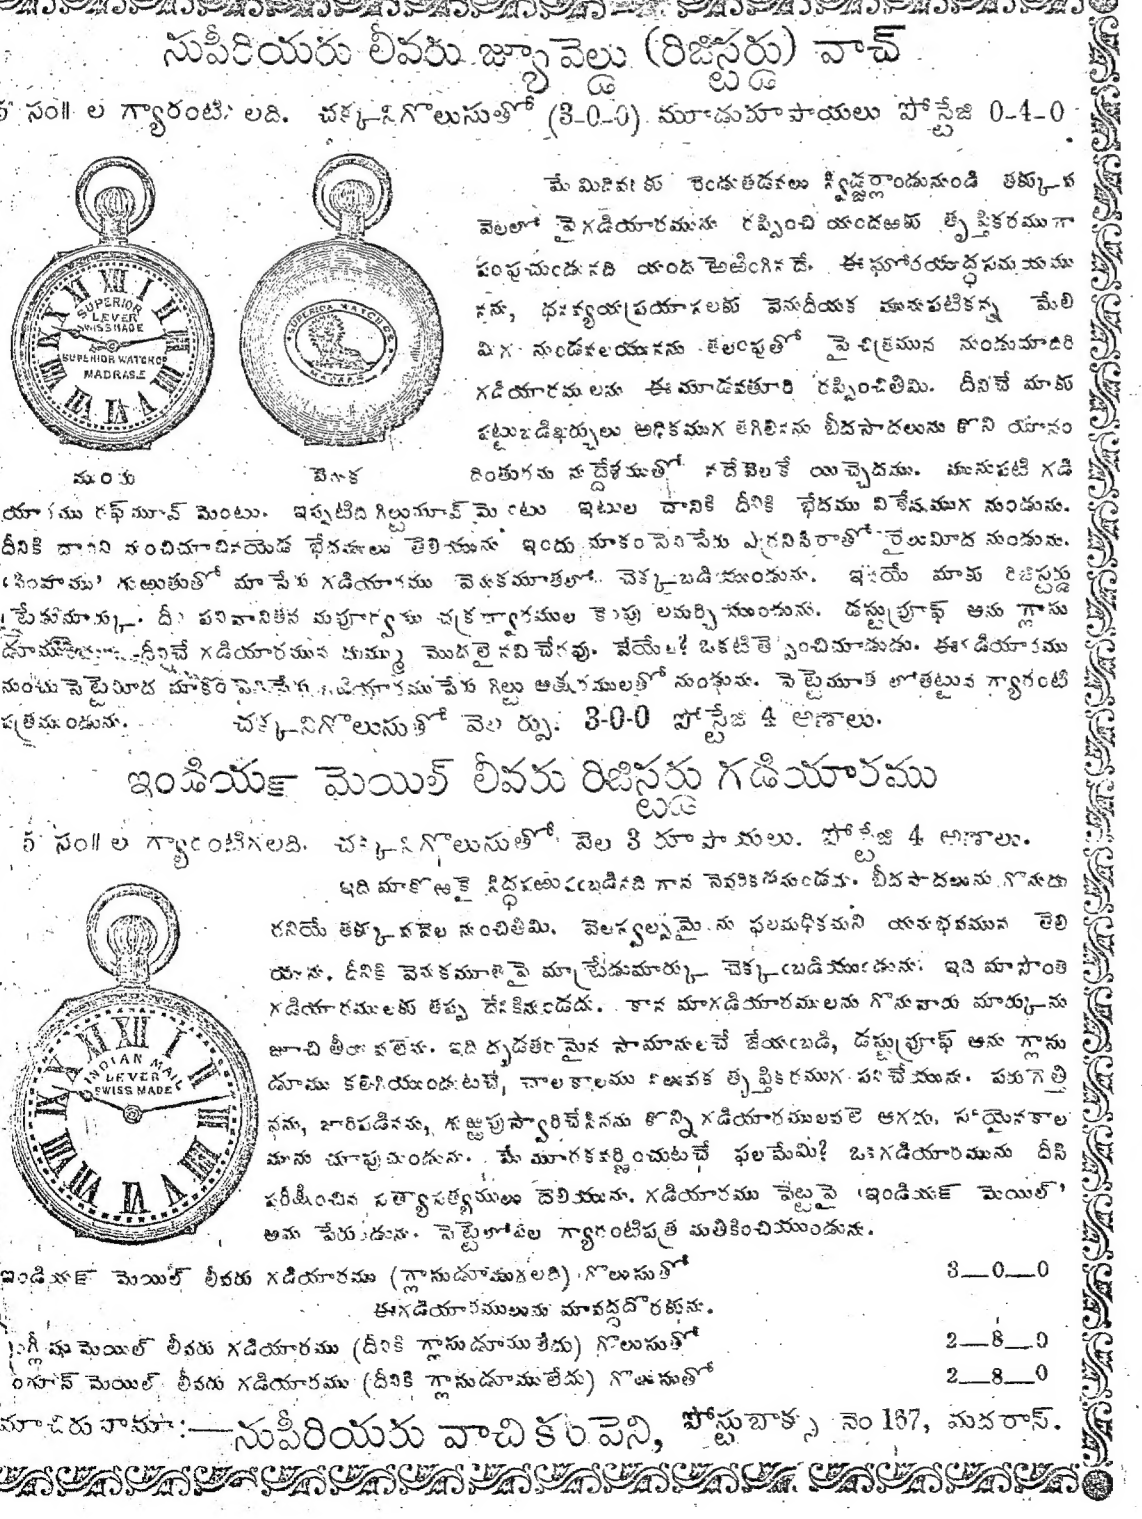 సుపీరియరు లీవరు జ్యూవెల్డు (రిజిస్టర్డు) వాచ్
5 సం॥ ల గ్యారంటి లది. చక్కనిగొలుసుతో (3-0-0) మూడురూపాయలు పోస్టేజి 0-4-0
మేమిదివరకు రెండుతడవలు స్విడ్జర్లాండునుండి తక్కువ
వెలలో పైగడియారమును రప్పించి యందఱకు తృప్తికరముగా
పంపుచుండునది యంద ఱెఱింగినదే. ఈఘోరయుద్ధసమయము
నను, ధనవ్యయప్రయాసలకు వెనుదీయక మునుపటికన్న మేలి
విగ నుండవలయునను తలంపుతో పై చిత్రమున నుండుమాదిరి
గడియారములను ఈమూడవతూరి రప్పించితిమి. దీనిచే మాకు
పట్టుబడిఖర్చులు అధికముగ తగిలినను బీదసాదలును కొని యానం
దింతురను నుద్దేశముతో నదేవెలకే యిచ్చెదము. మునుపటి గడి
SUPERIOR
LEVER
SWISS MADE
SUPERIOR WATCH CO
MADRAS.E
SUPERIOR WATCH CO
ముందు వెనుక
యారము రఫ్‌మూవ్ మెంటు. ఇప్పటిది గిల్టుమూవ్ మెంటు ఇటుల దానికి దీనికి భేదము విశేషముగ నుండును.
దీనికి దానిని నుంచిచూచినయెడ భేదములు తెలియును ఇందు మాకంపెనిపేరు ఎర్రనిసిరాతో రైలుమీద నుండును.
'సింహము' గుఱుతుతో మాపేరు గడియారము వెనుకమూతలో చెక్కబడియుండును. ఇదియే మాకు రిజిస్టర్డు
ట్రేడుమార్కు. దీని పనివానితన మపూర్వము చక్రద్వారముల కెంపు లమర్చియుండును. డస్టుప్రూఫ్ అను గ్లాసు
డూము దీనిచే గడియారమున దుమ్ము మొదలైనవి చేరవు. వేయేల? ఒకటితెప్పించిచూడుడు. ఈగడియారము
నుంచు పెట్టెమీద మాకంపెనిపేరు గడియారముపేరు గిల్టు అక్షరములతో నుండును. పెట్టెమూత లోతట్టున గ్యారంటి
పత్రముండును. చక్కనిగొలుసుతో వెల ర్పు. 3-0-0 పోస్టేజి 4 అణాలు.
ఇండియన్ మెయిల్ లీవరు రిజిస్టర్డు గడియారము
5 సం॥ ల గ్యారంటిగలది. చక్కనిగొలుసుతో వెల 3 రూపాయలు. పోస్టేజి 4 అణాలు.
ఇది మాకొఱకై సిద్ధపఱుపఁబడినది గాన నెవరికడనుండదు. బీదసాదలును గొనుదు
రనియే తక్కువవెల నుంచితిమి. వెలస్వల్పమైనను ఫలమధికమని యనుభవమున తెలి
యును. దీనికి వెనుకమూతపై మాట్రేడుమార్కు చెక్కఁబడియుండును. ఇది మాసొంత
గడియారములకు తప్ప దేనికినుండదు. కాన మాగడియారములను గొనువారు మార్కును
జూచి తీయవలెను. ఇది దృఢతరమైన సామానులచే జేయఁబడి, డస్టుప్రూఫ్ అను గ్లాసు
డూము కలిగియుండుటచే, చాలకాలము నిలువక తృప్తికరముగ పనిచేయును. పరుగెత్తి
నను, జారిపడినను, గుఱ్ఱపుస్వారిచేసినను కొన్ని గడియారములవలె ఆగదు. సరియైనకాల
మును చూపుచుండును. మే మూరకవర్ణించుటచే ఫలమేమి? ఒకగడియారమును దీసి
పరీక్షించిన సత్యాసత్యములు దెలియును. గడియారము పెట్టెపై 'ఇండియన్ మెయిల్'
అను పేరుండును. పెట్టెలోపల గ్యారంటిపత్ర మతికించియుండును.
INDIAN MAIL
LEVER
SWISS MADE
ఇండియన్ మెయిల్ లీవరు గడియారము (గ్లాసుడూముగలది) గొలుసుతో 3—0—0
ఈగడియారములును మావద్దదొరకును.
ఇంగ్లీషు మెయిల్ లీవరు గడియారము (దీనికి గ్లాసుడూము లేదు) గొలుసుతో 2—8—0
రంగూన్ మెయిల్ లీవరు గడియారము (దీనికి గ్లాసుడూములేదు) గొలుసుతో 2—8—0
మాచిరునామా:—సుపీరియరు వాచికంపెని, పోస్టుబాక్సు నెం 167, మదరాస్.